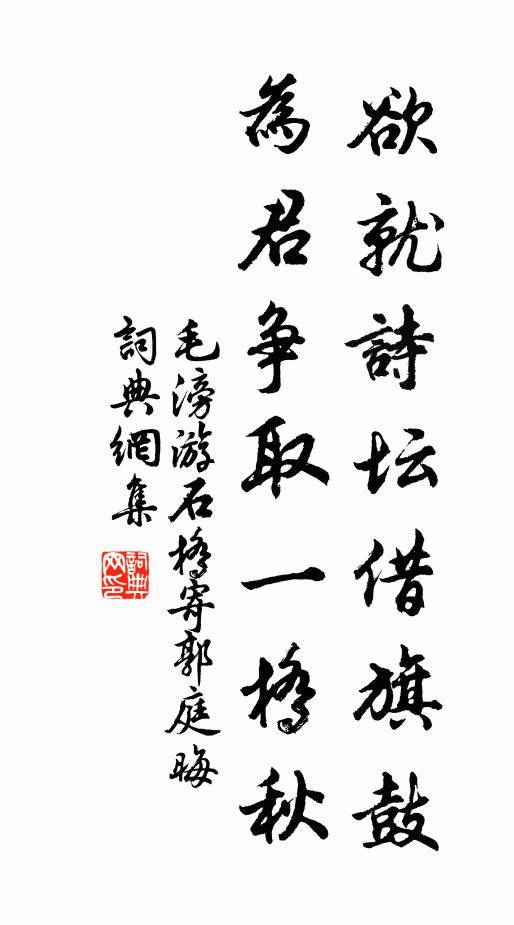 欲就詩坛借旗鼓
為君争取一橋秋
毛滂游石橋寄郭庭晦
詞典網集
詞典网印